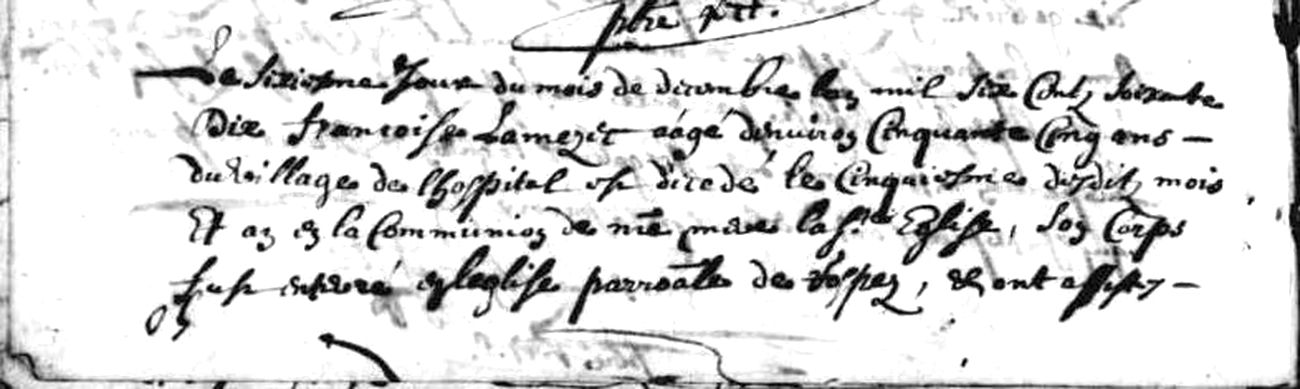 pbre ptt.
Le sixiesme Jour du mois de decembre lan mil six Centz soixante
Dix francoise Lamezec aagé denviron Cinquante Cinq ans -
du village de lhospital est decedé le Cinquiesme desditz mois
Et an en la Communion de nre mere la ste Eglise, son Corps
fust enterré en leglise parroalle de , et ont assisté -